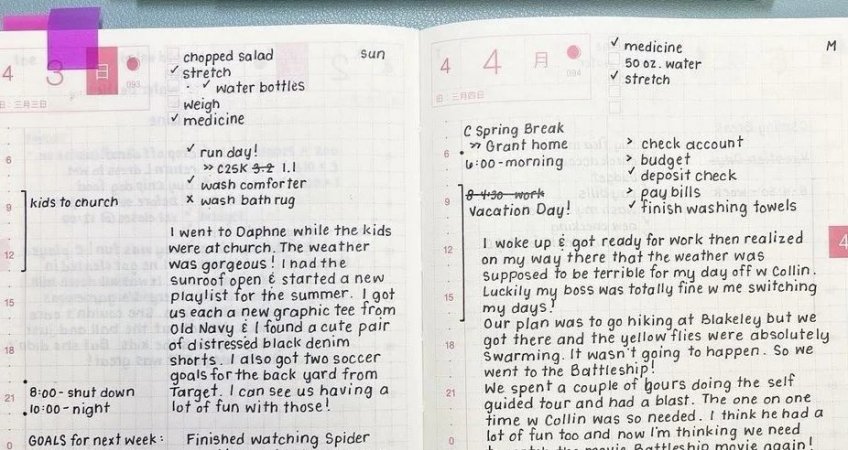 4 3 日
093
日 三月三日
sun
chopped salad
✓ stretch
· ✓ water bottles
weigh
✓ medicine
✓ run day!
» C25K 3.2 1.1
✓ wash comforter
x wash bath rug
6
9
12
15
18
21
0
kids to church
I went to Daphne while the kids
were at church. The weather
was gorgeous! I had the
sunroof open & started a new
playlist for the summer. I got
us each a new graphic tee from
Old Navy & I found a cute pair
of distressed black denim
shorts. I also got two soccer
goals for the back yard from
Target. I can see us having a
lot of fun with those!
8:00 - shut down
10:00 - night
GOALS for next week:
Finished watching Spider
4 4 月
094
日 三月四日
M
✓ medicine
50 oz. water
✓ stretch
C Spring Break
» Grant home
6:00 - morning
> check account
> budget
✓ deposit check
> pay bills
✓ finish washing towels
8-4:30 work
Vacation Day!
6
9
12
15
18
21
0
I woke up & got ready for work then realized
on my way there that the weather was
supposed to be terrible for my day off w Collin.
Luckily my boss was totally fine w me switching
my days!
Our plan was to go hiking at Blakeley but we
got there and the yellow flies were absolutely
swarming. It wasn't going to happen. So we
went to the Battleship!
We spent a couple of hours doing the self
guided tour and had a blast. The one on one
time w Collin was so needed. I think he had a
lot of fun too and now I'm thinking we need
to watch the movie Battleship movie again!
4